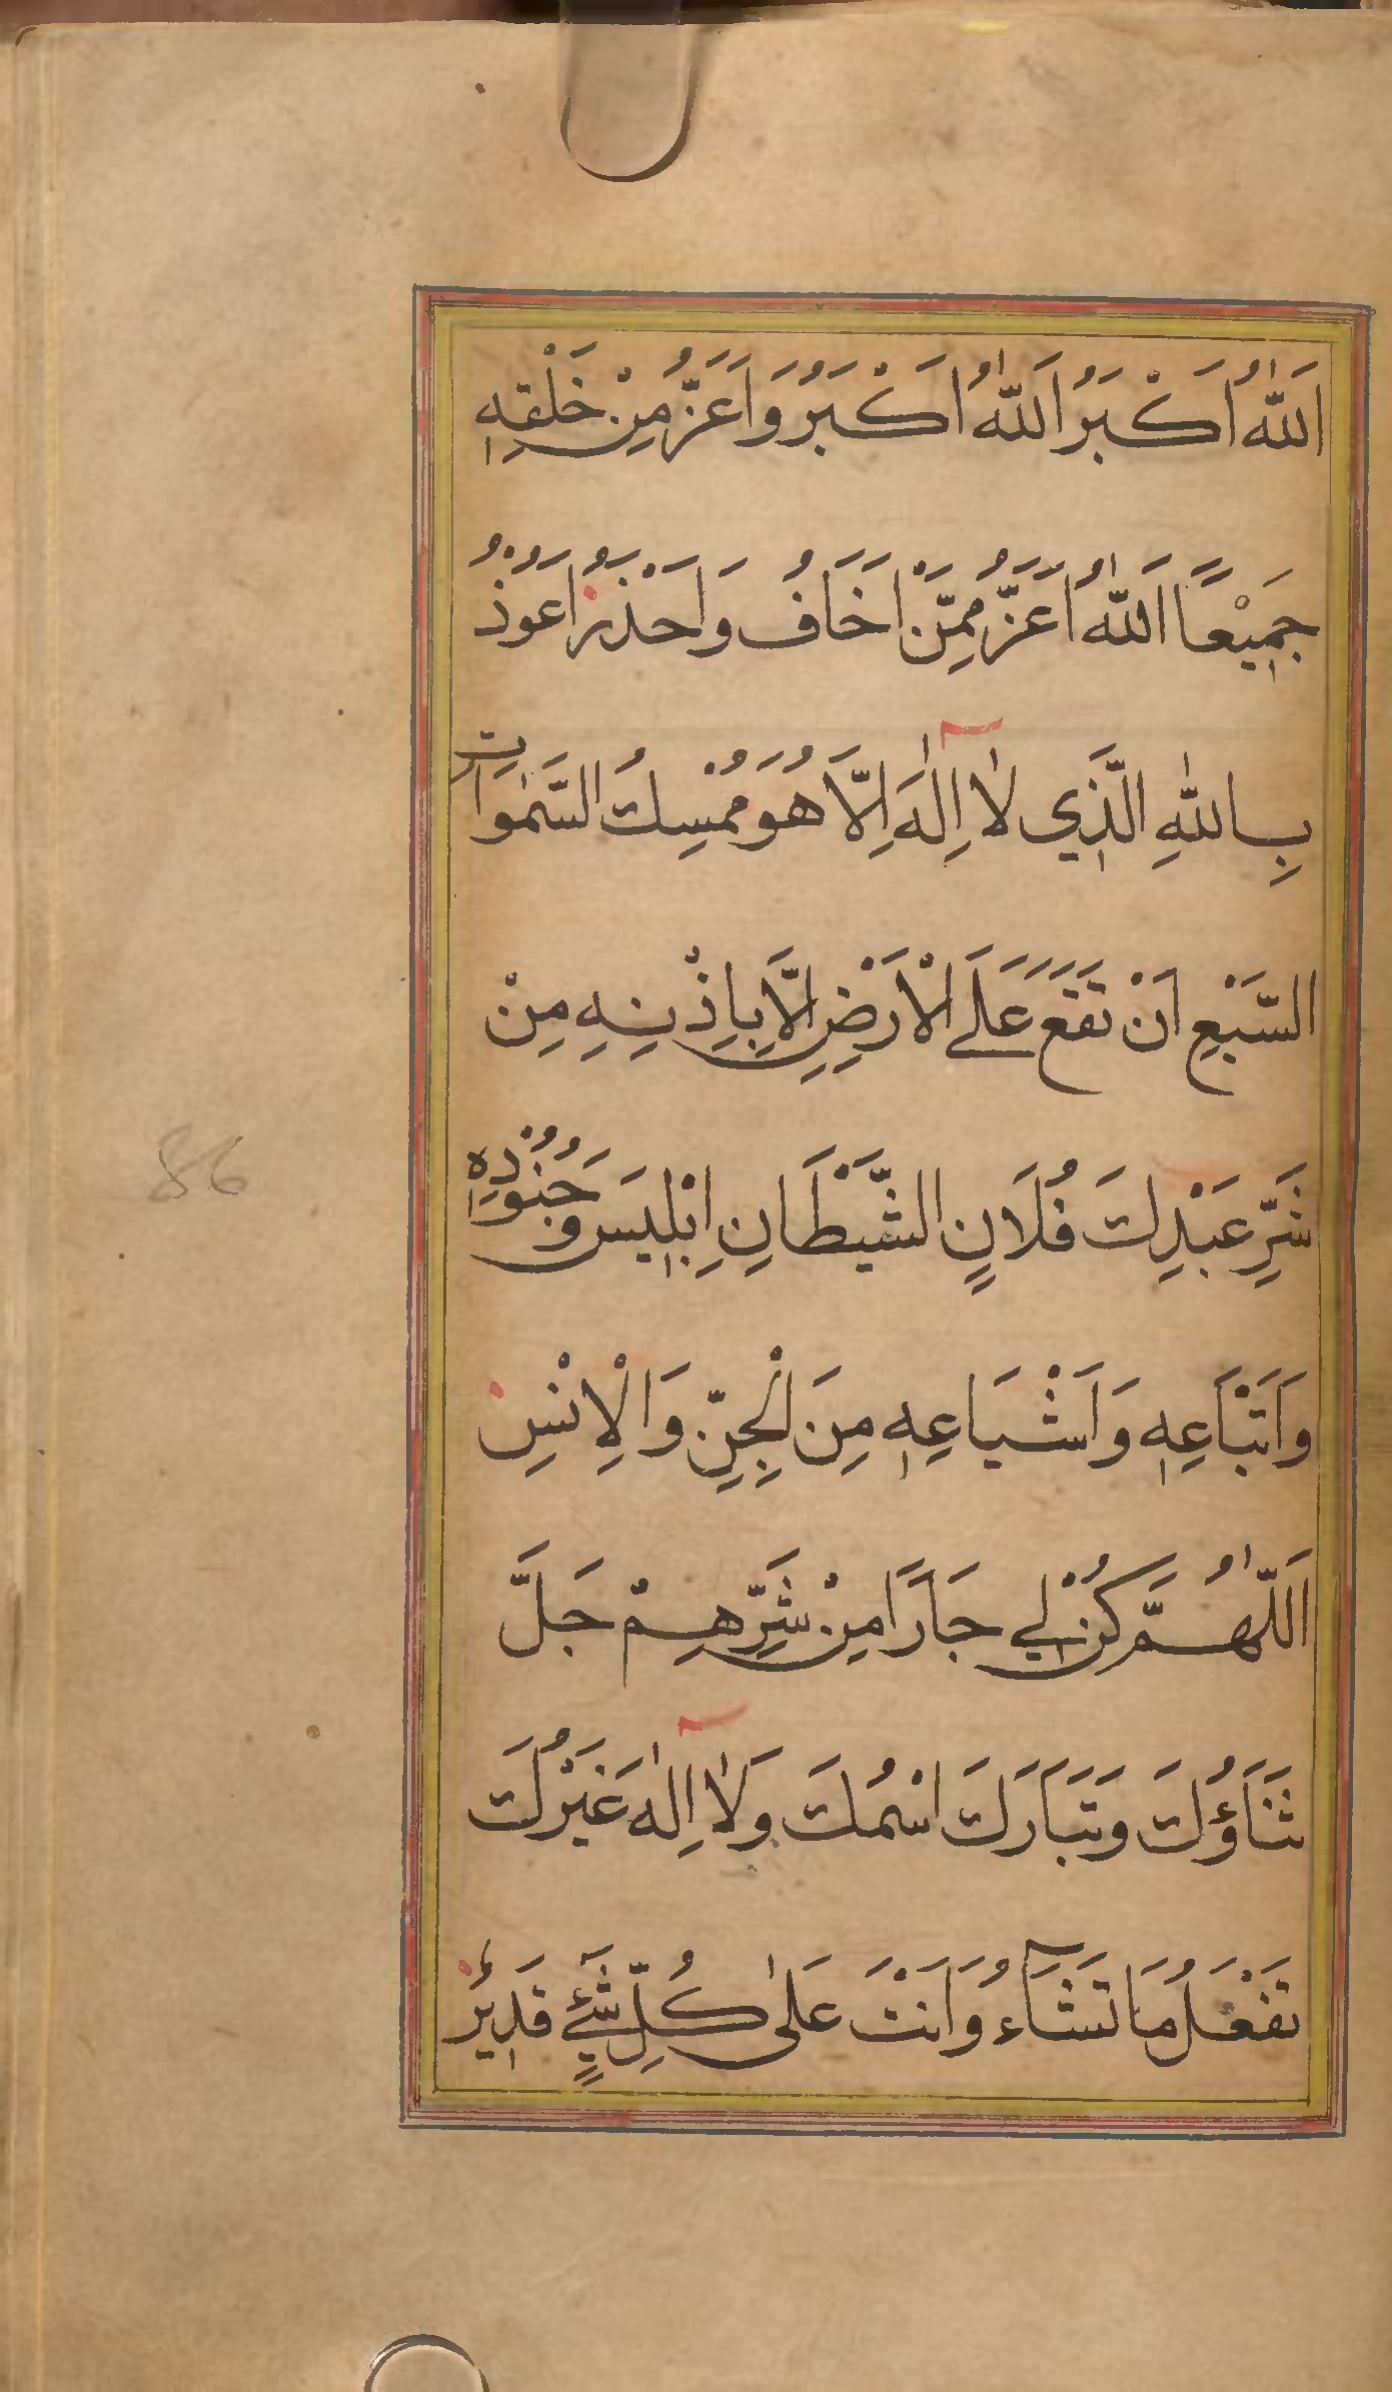 اَللّٰهُ اَكْبَرُ اَللّٰهُ اَكْبَرُ وَاَعَزُّ مِنْ خَلْقِهٖ
جَمِيْعًا اَللّٰهُ اَعَزُّ مِمَّنْ اَخَافُ وَاَحْذَرُ اَعُوْذُ
بِاللّٰهِ الَّذِي لٰا اِلٰهَ اِلَّا هُوَ مُمْسِكُ السَّمٰوَاتِ
السَّبْعِ اَنْ تَقَعَ عَلَى الْاَرْضِ اِلَّا بِاِذْنِهِ مِنْ
شَرِّ عَبْدِكَ فُلَانٍ الشَّيْطَانِ اِبْلِيسَ وَجُنُوْدِهٖ
وَاَتْبَاعِهٖ وَاَشْيَاعِهٖ مِنَ الْجِنِّ وَالْاِنْسِ
اَللّٰهُمَّ كُنْ لِي جَارًا مِنْ شَرِّهِمْ جَلَّ
ثَنَاؤُكَ وَتَبَارَكَ اسْمُكَ وَلٰا اِلٰهَ غَيْرُكَ
تَفْعَلُ مَا تَشَآءُ وَاَنْتَ عَلٰى كُلِّ شَيْءٍ قَدِيْرٌ
86